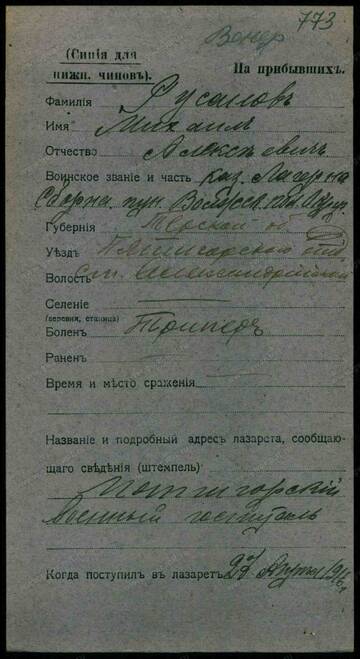 773
Венер
(Синія для
нижн. чиновъ).
На прибывшихъ.
Фамилія Русановъ
Имя Михаилъ
Отчество Алексѣевичъ
Воинское званіе и часть каз. Лагерна
Сборна. пун.
Губернія Терской об
Уѣздъ Пятигорскаго отд
Волость ст. Александрійской
Селеніе
(деревня, станица)
Боленъ Трипперъ
Раненъ
Время и мѣсто сраженія
Названіе и подробный адресъ лазарета, сообщаю-
щаго свѣдѣнія (штемпель)
Пятигорскій
военный госпиталь
Когда поступилъ въ лазаретъ